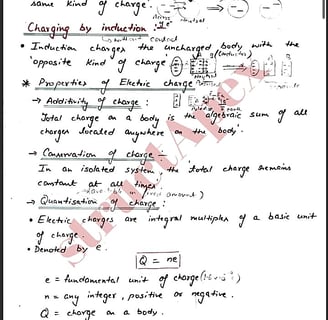 same kind of charge.
Charging by induction :-
without contact
• Induction charges the uncharged body with the
'opposite kind of charge
* Properties of Electric charge
→ Additivity of charge :
Total charge on a body is the algebraic sum of all
charges located anywhere on the body.
→ Conservation of charge :-
In an isolated system the total charge remains
constant at all times.
→ Quantisation of charge :
• Electric charges are integral multiples of a basic unit
of charge.
• Denoted by e.
Q = ne
e = fundamental unit of charge
n = any integer, positive or negative.
Q = charge on a body.